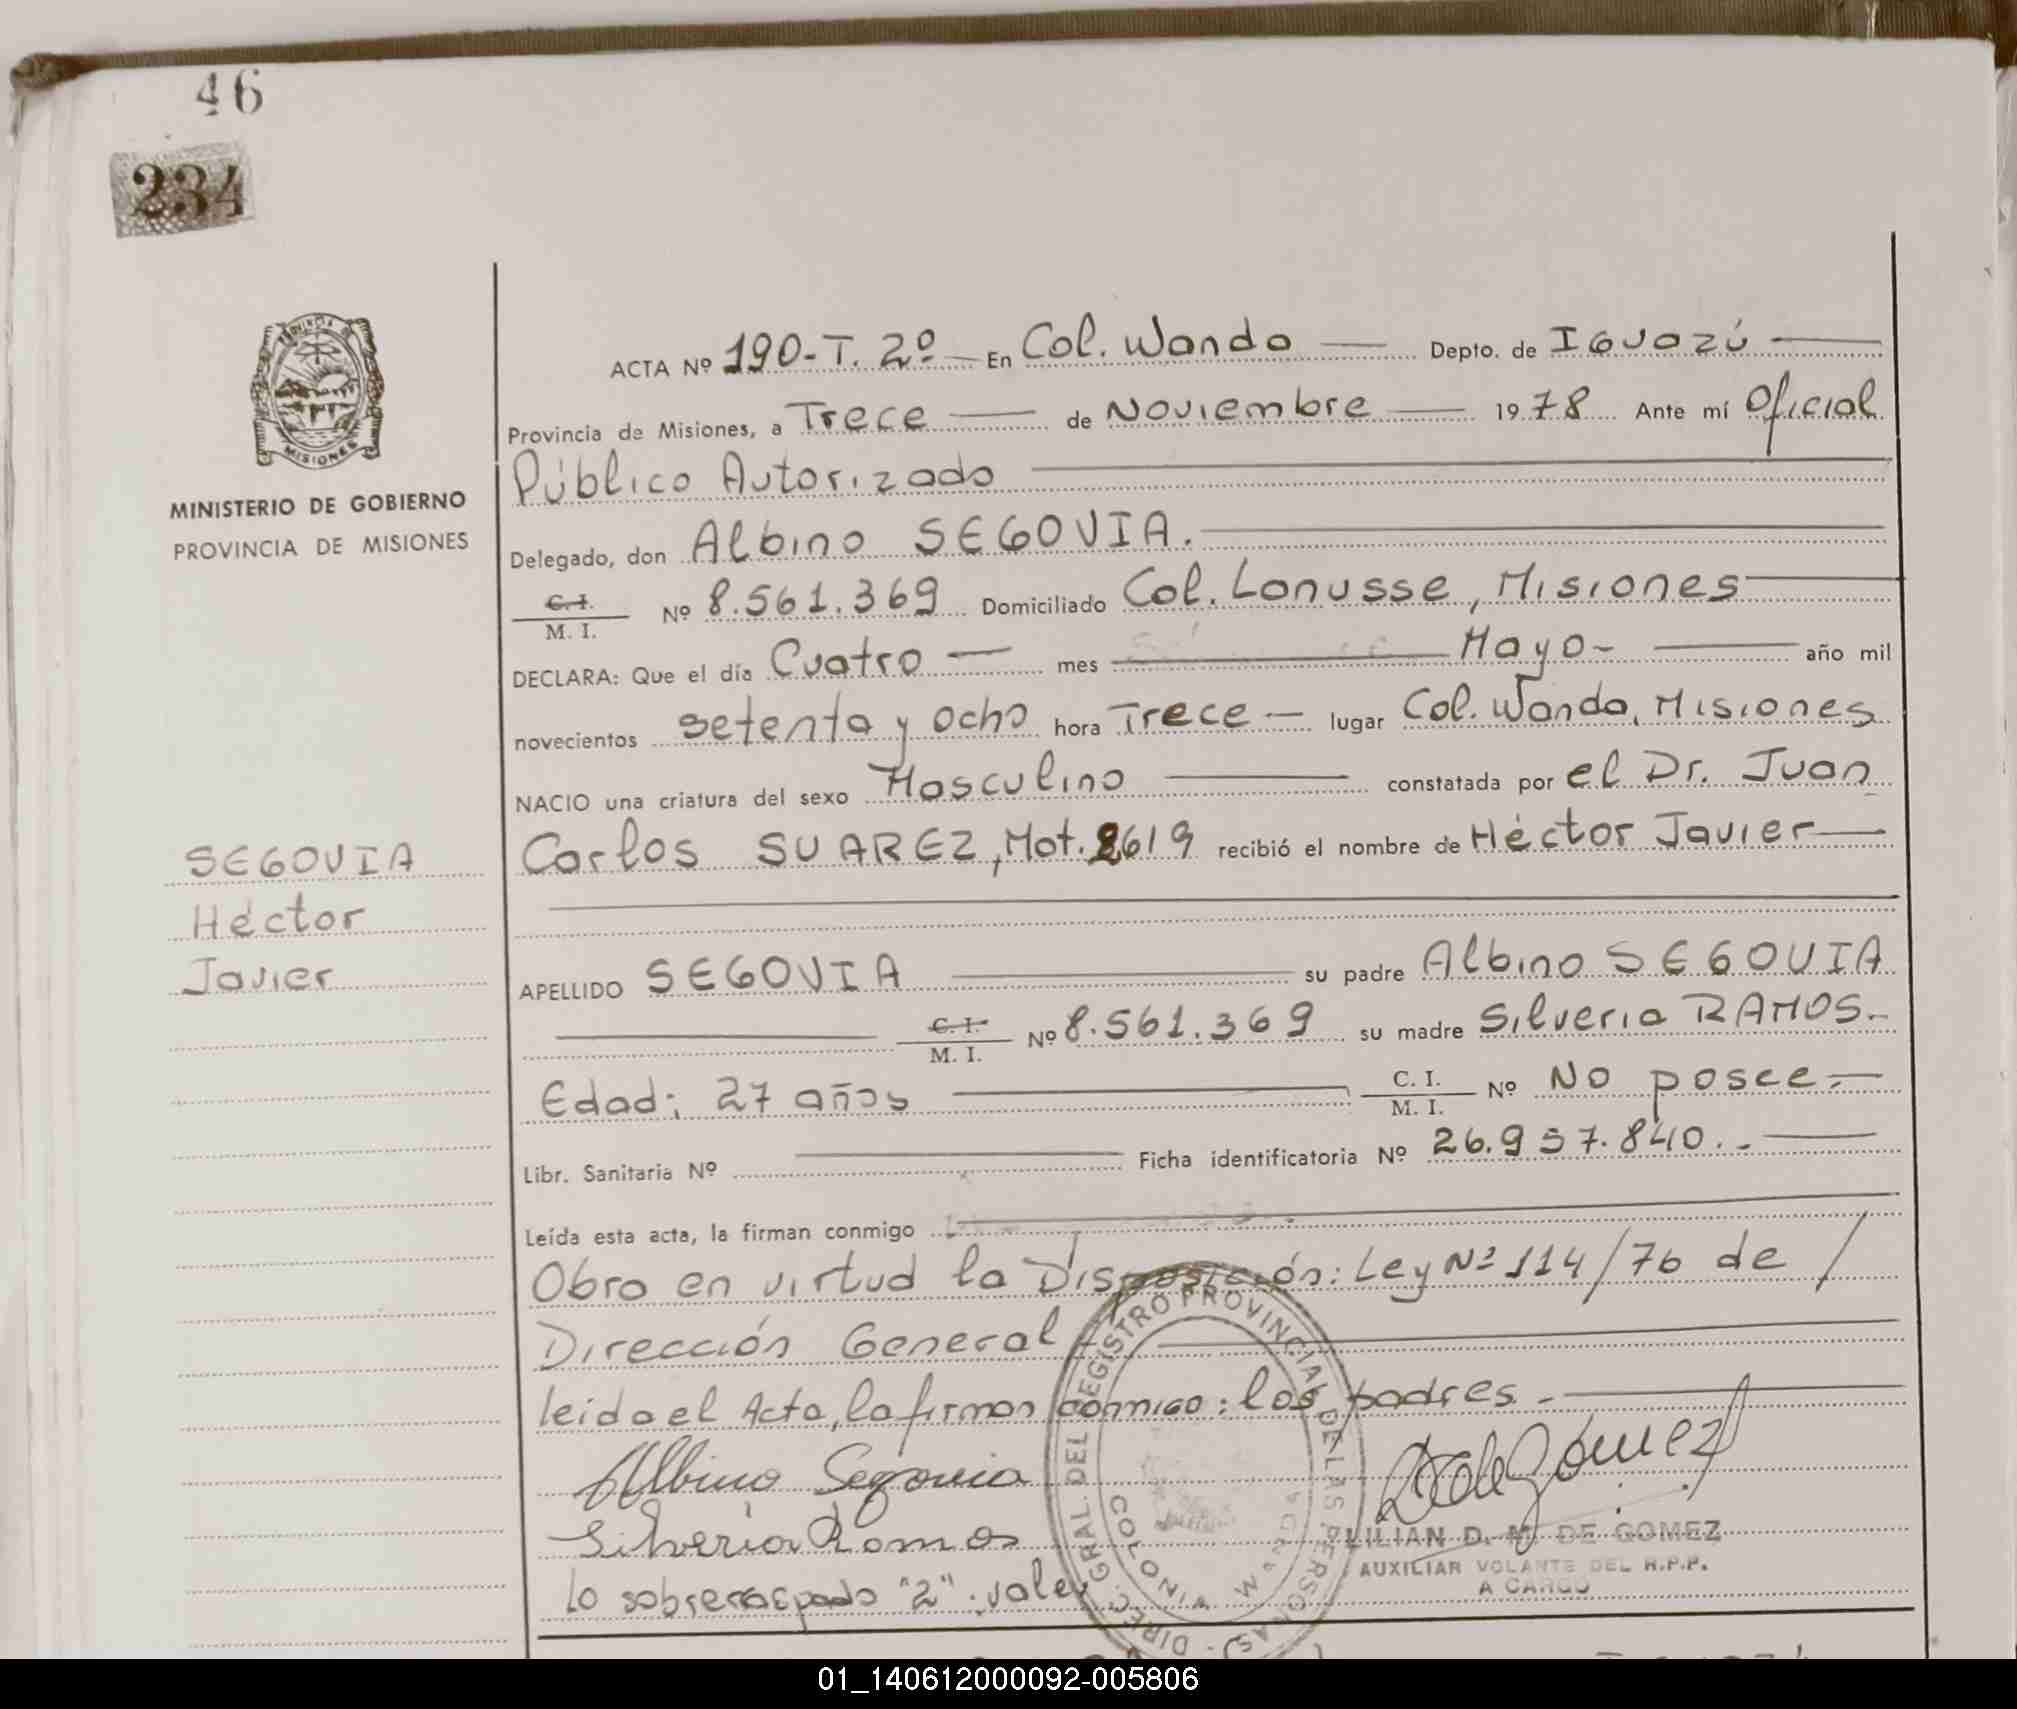 46
234
MISIONES
MINISTERIO DE GOBIERNO
PROVINCIA DE MISIONES
SEGOVIA
Héctor
Javier
ACTA Nº 190-T. 2º En Col. Wanda Depto. de IGUAZÚ
Provincia de Misiones, a Trece de Noviembre 1978 Ante mí Oficial
Público Autorizado
Delegado, don Albino SEGOVIA.
C.I. M. I. Nº 8.561.369 Domiciliado Col. Lanusse, Misiones
DECLARA: Que el día Cuatro mes Mayo- año mil
novecientos setenta y ocho hora Trece- lugar Col. Wanda, Misiones
NACIO una criatura del sexo Masculino constatada por el Dr. Juan
Carlos SUAREZ, Mat. 2619 recibió el nombre de Héctor Javier
APELLIDO SEGOVIA su padre Albino SEGOVIA
C. I. M. I. Nº 8.561.369 su madre Silveria RAMOS.-
Edad: 27 años C. I. M. I. Nº No posee.-
Libr. Sanitaria Nº Ficha identificatoria Nº 26.957.840.-
Leída esta acta, la firman conmigo
Obro en virtud la Disposición: Ley Nº 114/76 de /
Dirección General
leida el Acta, la firman conmigo: los padres.-
Albino Segovia
Silveria Ramos
LILIAN D. M. DE GOMEZ
AUXILIAR VOLANTE DEL R.P.P.
A CARGO
lo sobrerraspado "2". vale
DIREC. GRAL. DEL REGISTRO PROVINCIAL DE LAS PERSONAS
01_140612000092-005806